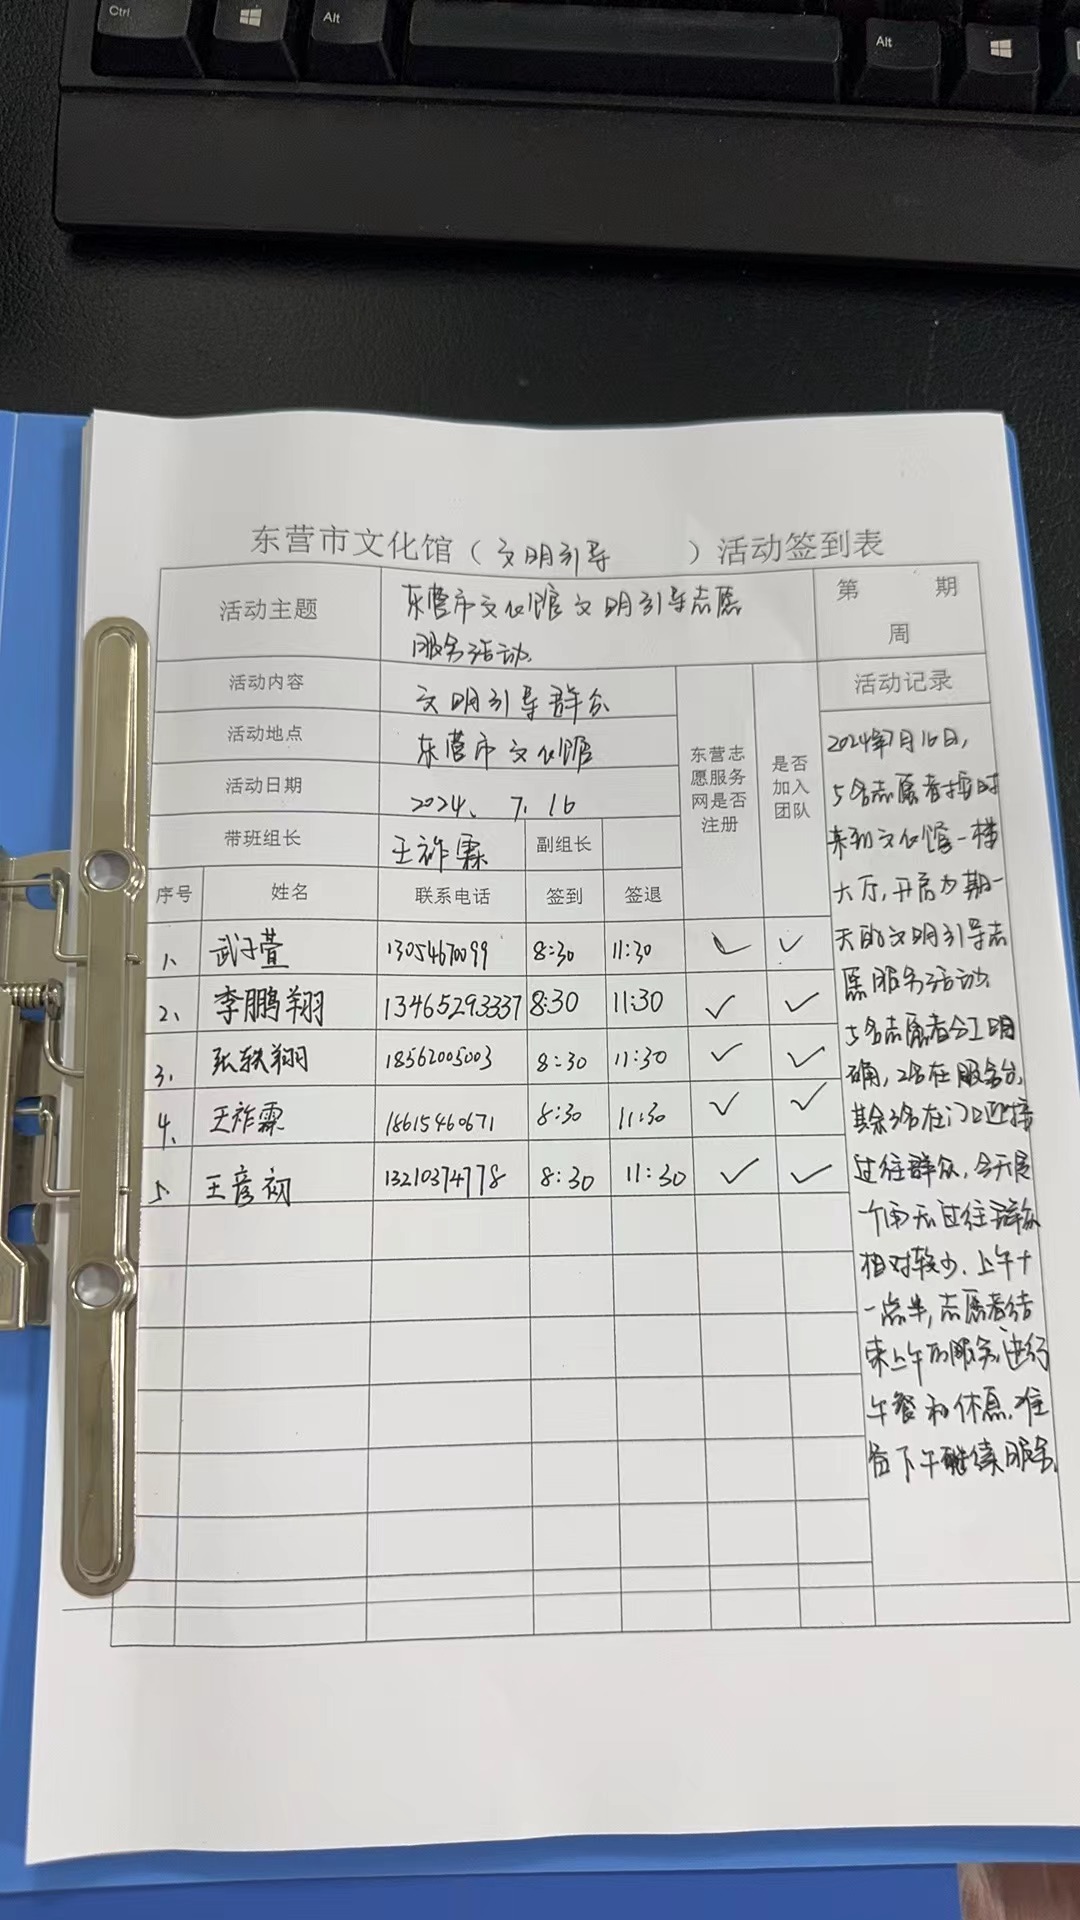 Ctrl
Alt
Alt
东营市文化馆（文明引导）活动签到表
活动主题
东营市文化馆文明引导志愿
服务活动
第 期
周
活动内容
文明引导群众
活动地点
东营市文化馆
活动日期
2024、7.16
东营志
愿服务
网是否
注册
是否
加入
团队
带班组长
王祚霖
副组长
序号 姓名 联系电话 签到 签退
1、 武子萱 13054670099 8:30 11:30 ✓ ✓
2、 李鹏翔 13465293337 8:30 11:30 ✓ ✓
3、 张轶翔 18562005003 8:30 11:30 ✓ ✓
4、 王祚霖 18615460671 8:30 11:30 ✓ ✓
5、 王彦初 13210374778 8:30 11:30 ✓ ✓
活动记录
2024年7月16日，
5名志愿者按时
来到文化馆一楼
大厅，开启为期一
天的文明引导志
愿服务活动
5名志愿者分工明
确，2名在服务台，
其余3名在门口迎接
过往群众，今天是
个雨天过往群众
相对较少．上午十
一点半，志愿者结
束上午的服务，进行
午餐和休息．准
备下午继续服务．